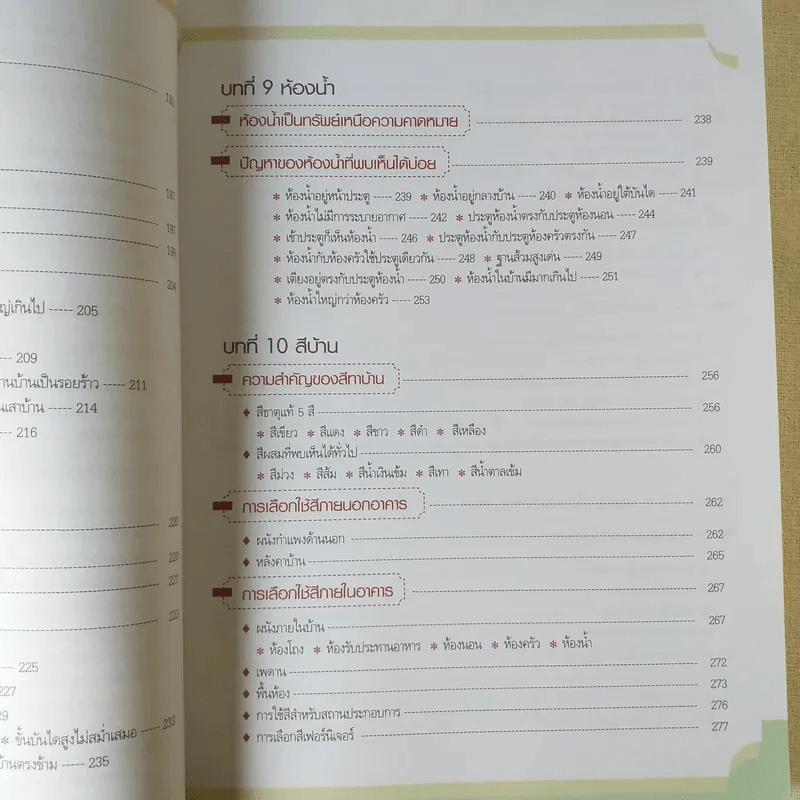 192
197
197
199
204
ญ่เกินไป ----- 205
209
านบ้านเป็นรอยร้าว ----- 211
นเสาบ้าน ----- 214
----- 216
220
220
221
223
---- 225
227
29
* ขั้นบันไดสูงไม่สม่ำเสมอ ----- 233
บ้านตรงข้าม ----- 235
บทที่ 9 ห้องน้ำ
ห้องน้ำเป็นทรัพย์เหนือความคาดหมาย 238
ปัญหาของห้องน้ำที่พบเห็นได้บ่อย 239
* ห้องน้ำอยู่หน้าประตู ----- 239 * ห้องน้ำอยู่กลางบ้าน ---- 240 * ห้องน้ำอยู่ใต้บันได ---- 241
* ห้องน้ำไม่มีการระบายอากาศ ---- 242 * ประตูห้องน้ำตรงกับประตูห้องนอน ---- 244
* เข้าประตูก็เห็นห้องน้ำ ---- 246 * ประตูห้องน้ำกับประตูห้องครัวตรงกัน ---- 247
* ห้องน้ำกับห้องครัวใช้ประตูเดียวกัน ---- 248 * ฐานส้วมสูงเด่น ---- 249
* เตียงอยู่ตรงกับประตูห้องน้ำ ---- 250 * ห้องน้ำในบ้านมีมากเกินไป ---- 251
* ห้องน้ำใหญ่กว่าห้องครัว ----- 253
บทที่ 10 สีบ้าน
ความสำคัญของสีทาบ้าน 256
♦ สีธาตุแท้ 5 สี 256
* สีเขียว * สีแดง * สีขาว * สีดำ * สีเหลือง
♦ สีผสมที่พบเห็นได้ทั่วไป 260
* สีม่วง * สีส้ม * สีน้ำเงินเข้ม * สีเทา * สีน้ำตาลเข้ม
การเลือกใช้สีภายนอกอาคาร 262
♦ ผนังกำแพงด้านนอก 262
♦ หลังคาบ้าน 265
การเลือกใช้สีภายในอาคาร 267
♦ ผนังภายในบ้าน 267
* ห้องโถง * ห้องรับประทานอาหาร * ห้องนอน * ห้องครัว * ห้องน้ำ
♦ เพดาน 272
♦ พื้นห้อง 273
♦ การใช้สีสำหรับสถานประกอบการ 276
♦ การเลือกสีเฟอร์นิเจอร์ 277